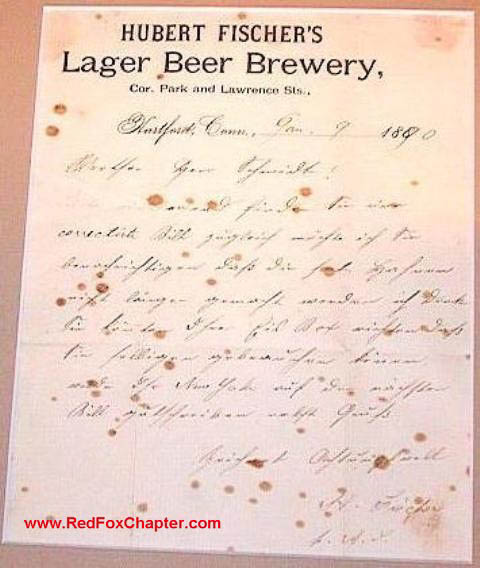 HUBERT FISCHER'S
Lager Beer Brewery,
Cor. Park and Lawrence Sts.,
Hartford, Conn., Jan. 9 1890
Werther Herr Schmidt!
finden Sie
correctirte Bill zugleich möchte ich Sie
benachrichtigen daß die Hahnen
nicht länger gemacht werden ich denke
Sie könnten Ihre Eis Box richten daß
Sie selbigen gebrauchen können
werde Ihr auf der nächsten
Bill gutschreiben nebst Gruß
Zeichnet Achtungsvoll
H. Fischer
www.RedFoxChapter.com